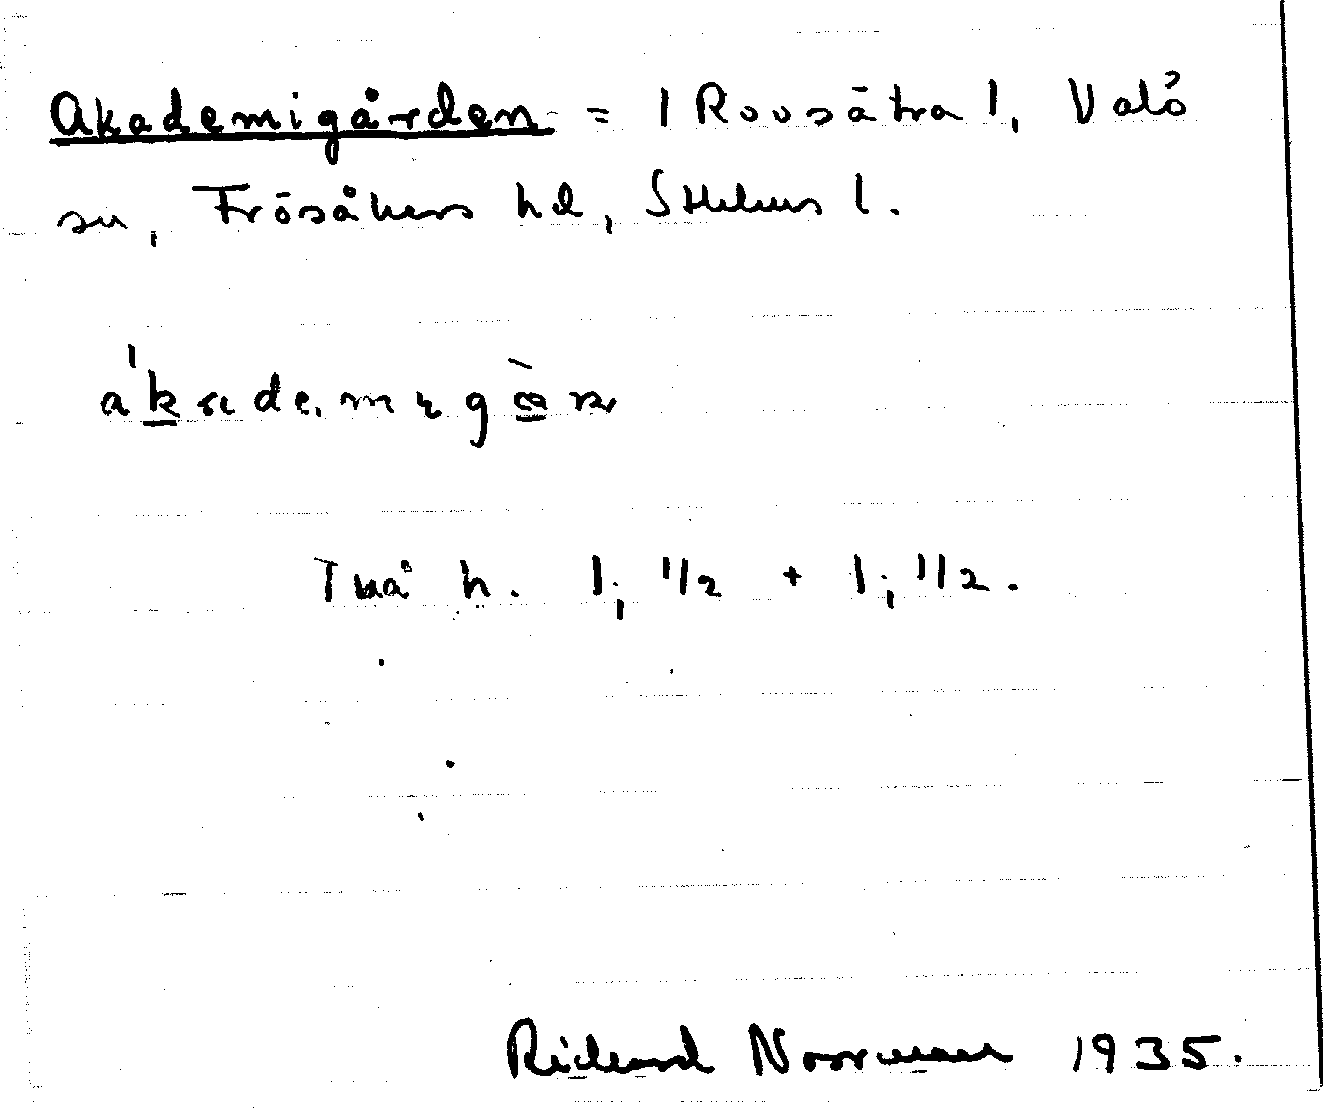 Akademigården = 1 Rovsätra 1, Valö
sn, Frösåkers hd, Sthlms l.
Två h. 1; 1/2 + 1; 1/2.
Richard Norrman 1935.